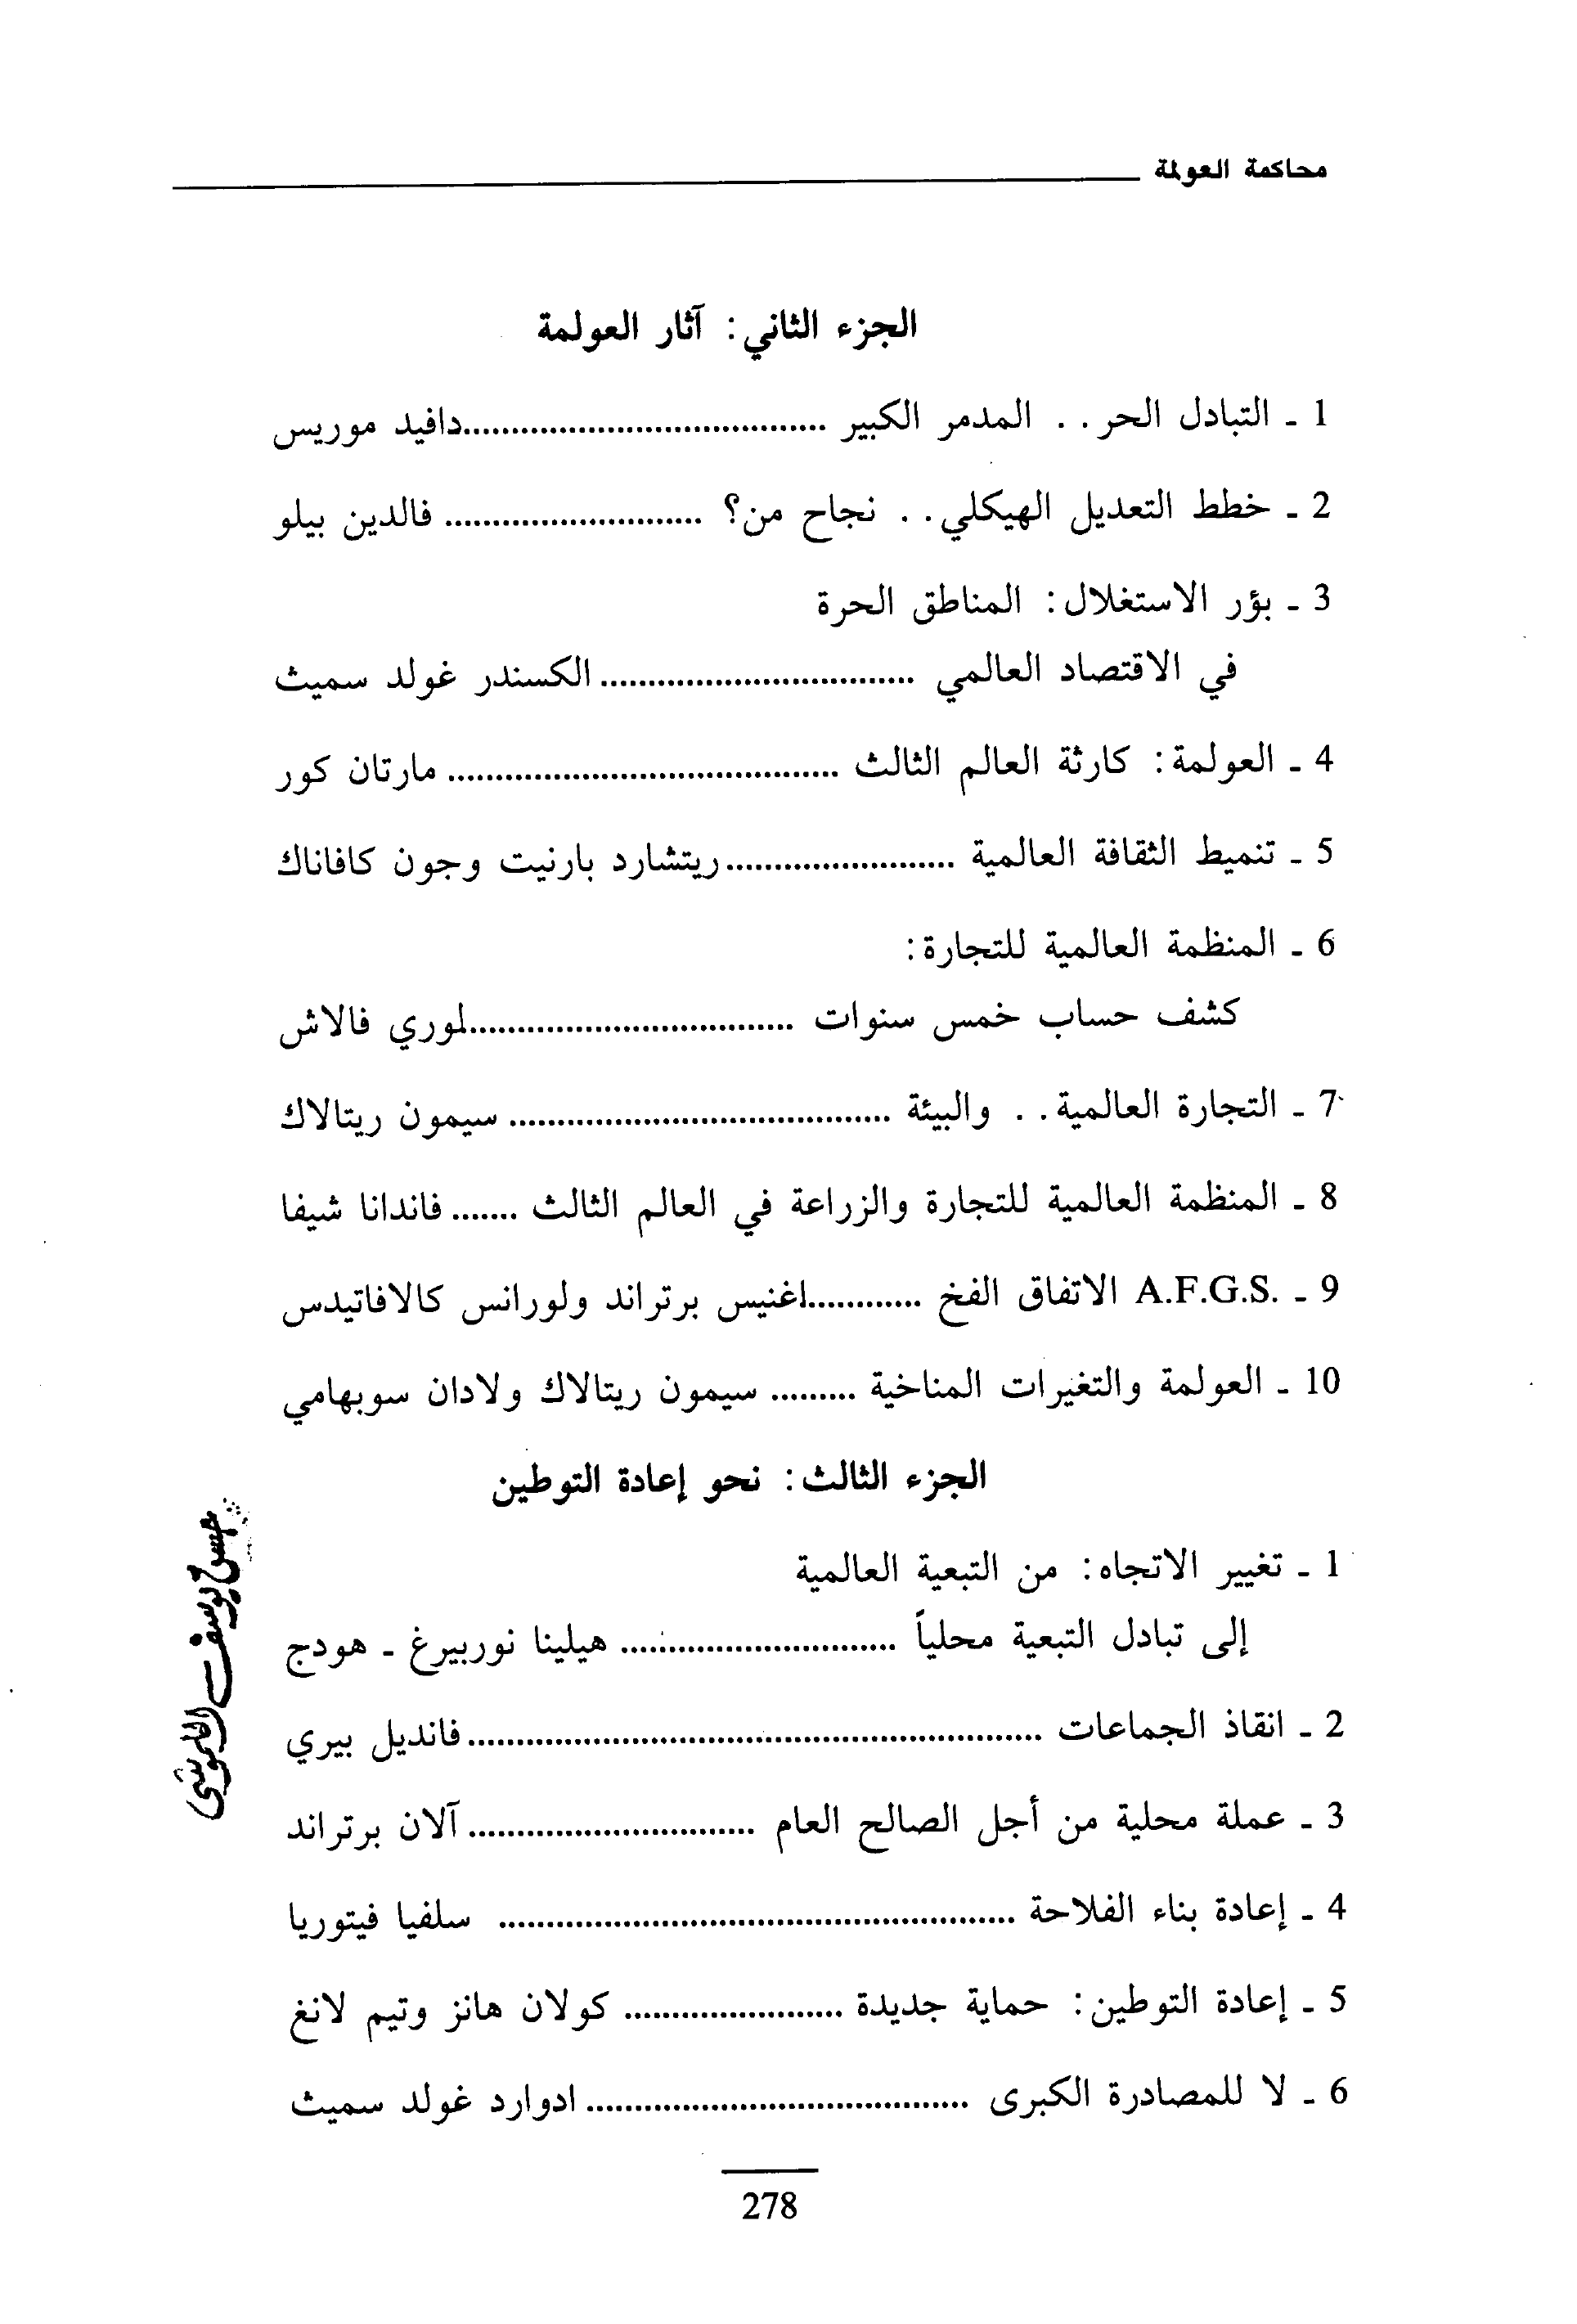 محاكمة العولمة
الجزء الثاني: آثار العولمة
1 ـ التبادل الحر . . المدمر الكبير ......................................دافيد موريس
2 ـ خطط التعديل الهيكلي . . نجاح من؟ ........................... فالدين بيلو
3 ـ بؤر الاستغلال: المناطق الحرة
في الاقتصاد العالمي ................................. الكسندر غولد سميث
4 ـ العولمة: كارثة العالم الثالث ......................................... مارتان كور
5 ـ تنميط الثقافة العالمية ........................ريتشارد بارنيت وجون كافاناك
6 ـ المنظمة العالمية للتجارة:
كشف حساب خمس سنوات ..................................لموري فالاش
7 ـ التجارة العالمية . . والبيئة ........................................ سيمون ريتالاك
8 ـ المنظمة العالمية للتجارة والزراعة في العالم الثالث .......فاندانا شيفا
9 ـ A.F.G.S. الاتفاق الفخ ............اغنيس برتراند ولورانس كالافاتيدس
10 ـ العولمة والتغيرات المناخية ......... سيمون ريتالاك ولادان سوبهامي
الجزء الثالث: نحو إعادة التوطين
1 ـ تغيير الاتجاه: من التبعية العالمية
إلى تبادل التبعية محلياً ............................. هيلينا نوربيرغ ـ هودج
2 ـ انقاذ الجماعات ............................................................فانديل بيري
3 ـ عملة محلية من أجل الصالح العام ..............................آلان برتراند
4 ـ إعادة بناء الفلاحة ...................................................... سلفيا فيتوريا
5 ـ إعادة التوطين: حماية جديدة ....................... كولان هانز وتيم لانغ
6 ـ لا للمصادرة الكبرى ........................................ادوارد غولد سميث
278